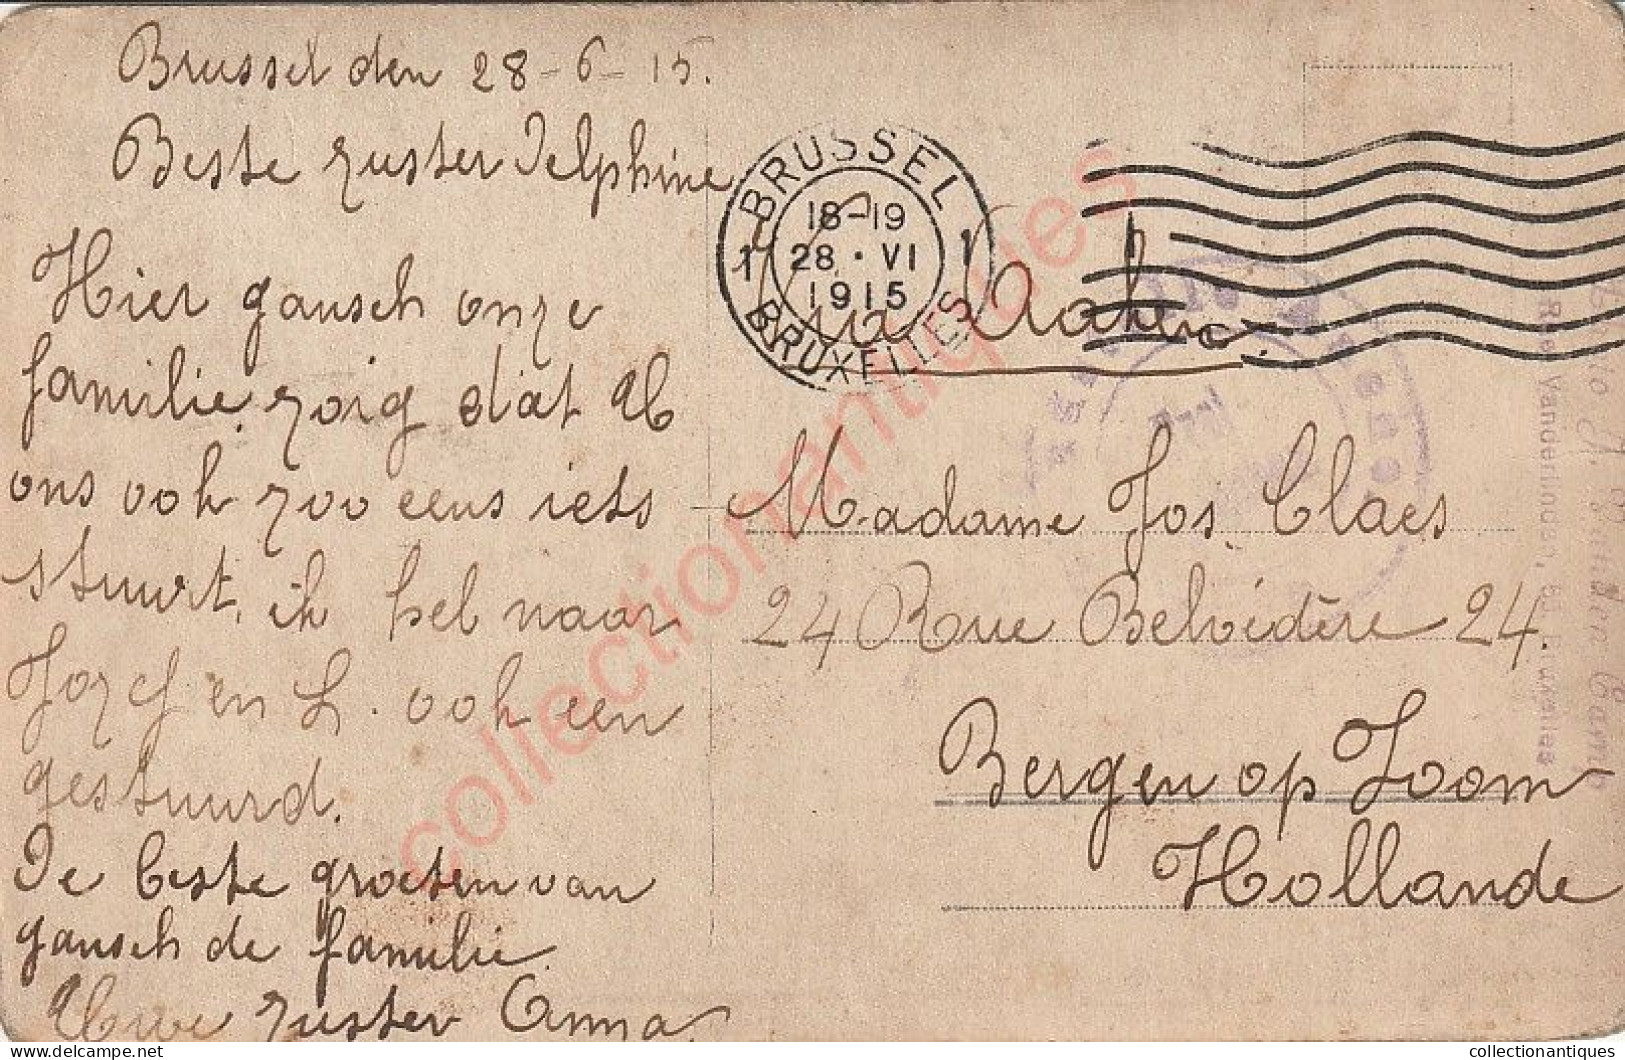 Brussel den 28-6-15.
Beste zuster Delphine
Hier gansch onze
familie, zorg dat U
ons ook zoo eens iets
stuurt, ik heb naar
Jozef en L. ook een
gestuurd.
De beste groeten van
gansch de familie
Uwe zuster Anna,
BRUSSEL
18-19
28 · VI
1915
1 1
BRUXELLES
via Aaken
Madame Jos. Claes
24 Rue Belvédère 24.
Bergen op Zoom
Hollande
Rue Vanderlinden, Bruxelles
collectionantiques
collectionantiques